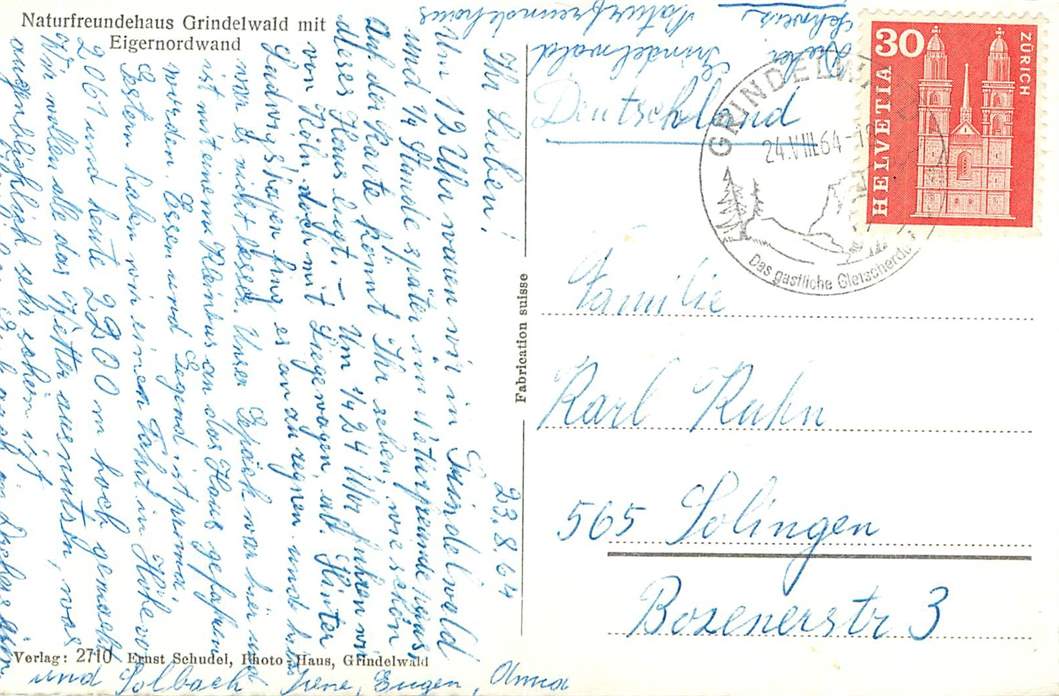 Naturfreundehaus Grindelwald mit
Eigernordwand
23.8.64
Ihr Lieben!
Um 12 Uhr waren wir in Grindelwald
und 1/4 Stunde später im Naturfreundehaus,
Auf der Karte könnt Ihr sehen, wie schön
dieses Haus liegt. – Um 1/4 24 Uhr fuhren wir
von Köln doch mit Liegewagen, ab Hinter
Ludwigshafen fing es an zu regnen und hier
war es nicht besser. Unser Gepäck war hier und
ist mit einem Kleinbus an das Haus gefahren
worden. Essen und Gegend ist prima,
Gestern haben wir einen Fahrt in Höhe v.
2061 und heute 2300 m hoch gemacht
Wir wollen alle das Wetter ausnutzen, was
augenblicklich sehr schön ist.
und Solbach Irene, Eugen, Anna
Verlag: 2710 Ernst Schudel, Photo-Haus, Grindelwald
Fabrication suisse
Naturfreundehaus
Grindelwald
Schweiz
Deutschland
30
HELVETIA
ZÜRICH
GRINDELW
24.VIII.64
Das gastliche Gletscherdo
Familie
Karl Kuhn
565 Solingen
Bozenerstr 3